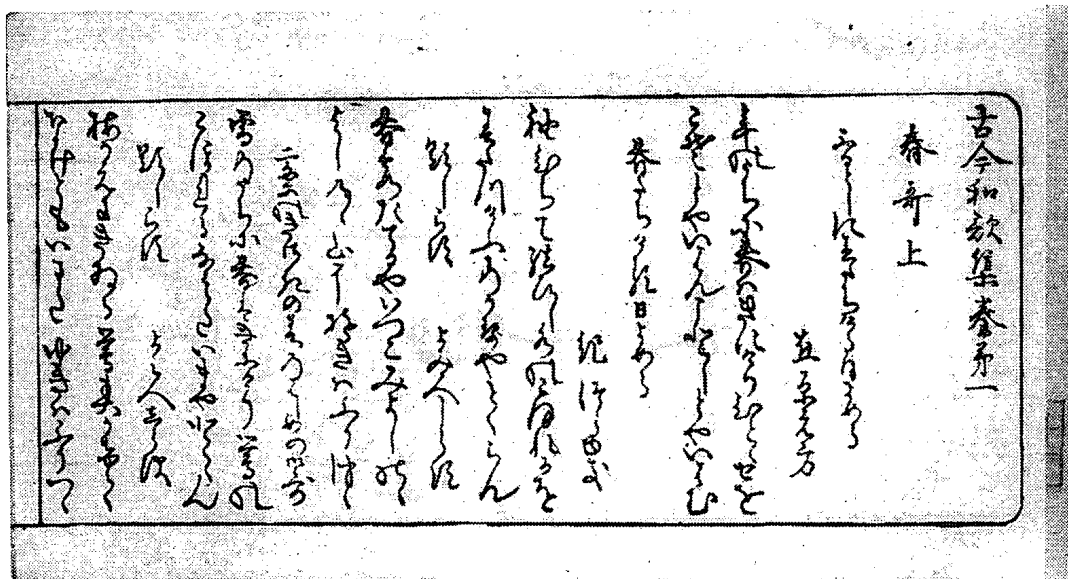 古今和歌集巻第一
春哥上
ふるとしに春たちける日よめる
在原元方
年の内に春はきにけりひとゝせを
こそとやいはんことしとやいはむ
春たちける日よめる
紀つらゆき
袖ひちてむすひし水のこほれるを
春たつけふの風やとくらん
題しらす
よみ人しらす
春霞たてるやいつこみよしのゝ
よしのゝ山に雪はふりつゝ
二条のきさきの春のはしめの御哥
雪の内に春はきにけり鶯の
こほれる涙いまやとくらん
題しらす
よみ人しらす
梅かえにきゐる鶯春かけて
なけともいまた雪はふりつゝ